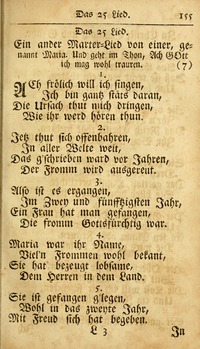 Das 25 Lied. 155
Das 25 Lied.
Ein ander Marter-Lied von einer, ge-
nannt Maria. Und geht im Thon, Ach GOtt
ich mag wohl trauren. (7)
1.
ACh frölich will ich singen,
Ich bin gantz stäts daran,
Die Ursach thut mich dringen,
Wie ihr werd hören thun.
2.
Jetz thut sich offenbahren,
In aller Welte weit,
Das g'schrieben ward vor Jahren,
Der Fromm wird ausgereut.
3.
Also ist es ergangen,
Im Zwey und fünfftzigsten Jahr,
Ein Frau hat man gefangen,
Die fromm Gottsfürchtig war.
4.
Maria war ihr Name,
Viel'n Frommen wohl bekant,
Sie hat bezeugt lobsame,
Dem Herren in dem Land.
5.
Sie ist gefangen g'legen,
Wohl in das zweyte Jahr,
Mit Freud sich hat begeben.
L 3 In